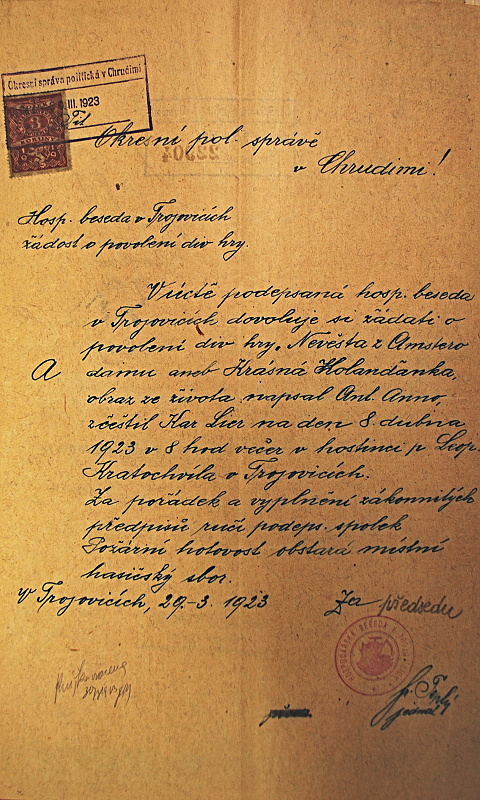 Okresní správa politická v Chrudimi
III. 1923
3
Okresní pol. správě
v Chrudimi!
Hosp. beseda v Trojovicích
žádost o povolení div hry.
V úctě podepsaná hosp. beseda
v Trojovicích dovoluje si žádati o
povolení div hry „Nevěsta z Amstero
A
damu aneb Krásná Holanďanka,
obraz ze života napsal Ant. Anno,
zčeštil Kar Lier na den 8. dubna
1923 v 8 hod večer v hostinci p Leop.
Kratochvíla v Trojovicích.
Za pořádek a vyplnění zákonnitých
předpisů ručí podeps. spolek
Požární hotovost obstará místní
hasičský sbor.
V Trojovicích, 29.-3. 1923
Za předsedu
jednat